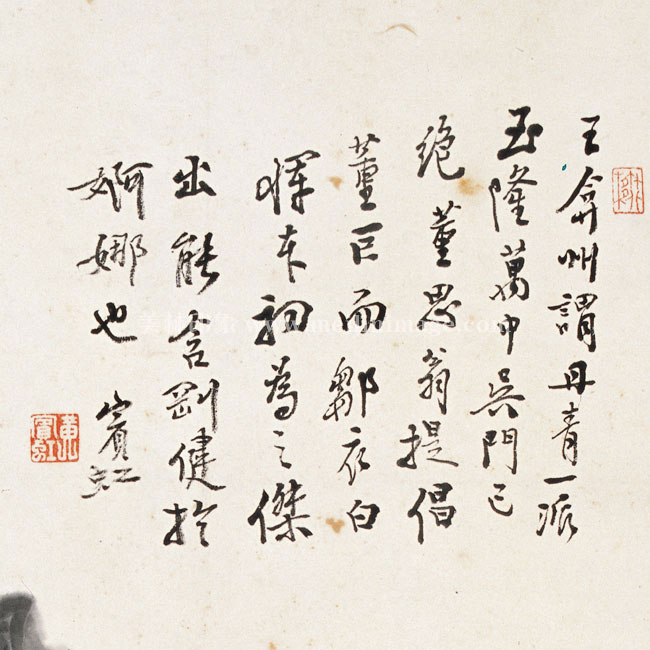 王弇州謂丹青一派
至隆萬中吳門已
絕董思翁提倡
董巨而鄒衣白
惲本初為之傑
出能含剛健於
婀娜也 賓虹
黃賓虹